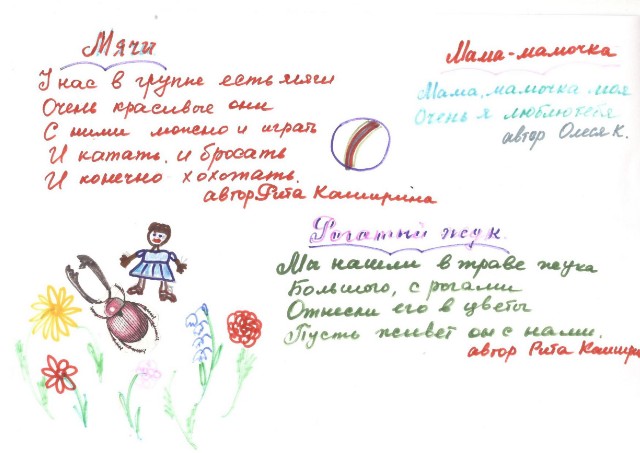 Мячи
У нас в группе есть мячи
Очень красивые они
С ними можно и играть
И катать, и бросать
И конечно хохотать.
автор Рита Каширина
Мама-мамочка
Мама, мамочка моя
Очень я люблю тебя
автор Олеся К.
Рогатый жук.
Мы нашли в траве жука
Большого, с рогами
Отнесли его в цветы
Пусть живет он с нами.
автор Рита Кашири